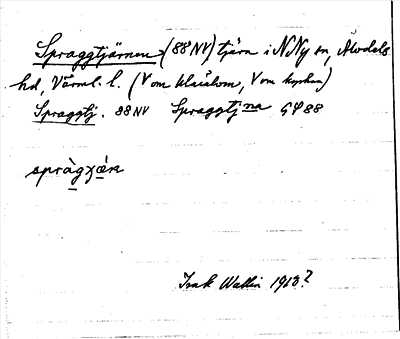 Spraggtjärnen (88 NV) tjärn i N Ny sn, Älvdals
hd, Värml. l. (V om Klarälven, V om kyrkan)
Spraggtj. 88 NV Spraggtjna GΨ88
Isak Wallin 1918?